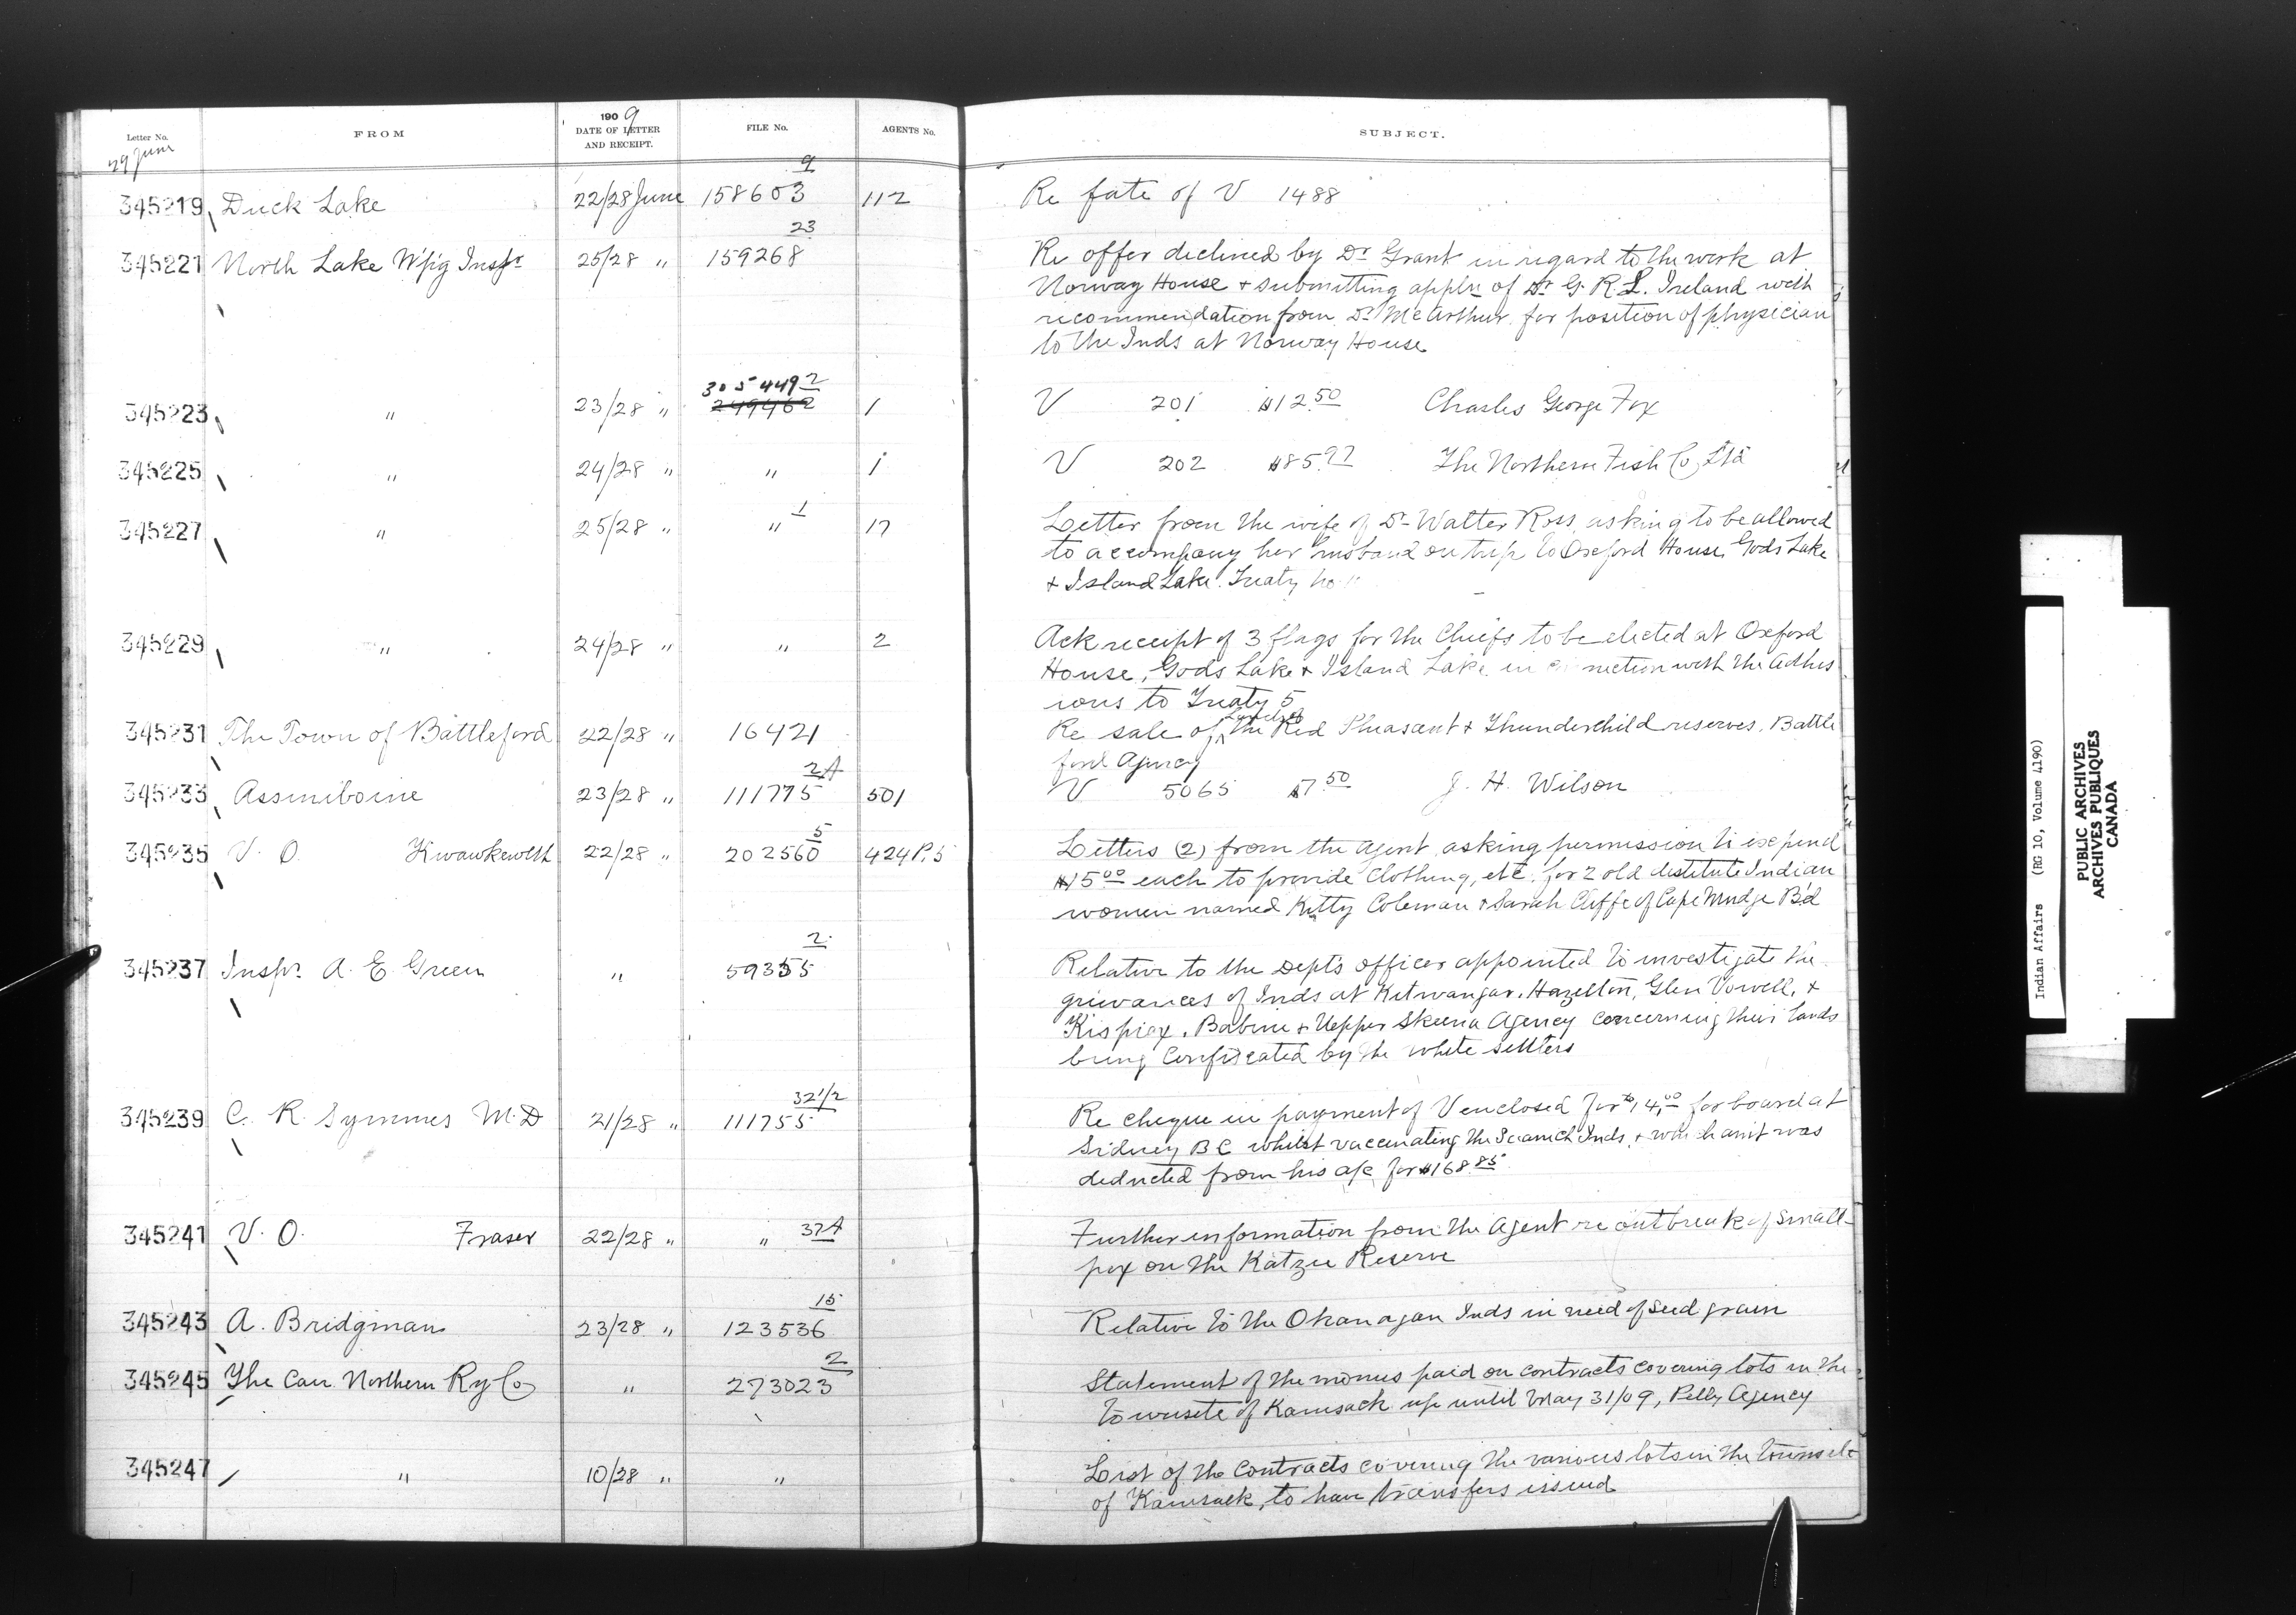 Letter No. FROM 1909 DATE OF LETTER AND RECEIPT. FILE No. AGENTS No. SUBJECT.
29 June
345219 Duck Lake 22/28 June 158603 9 112 Re fate of V 1488
345221 North Lake W'p'g Inspr 25/28 " 159268 23 Re offer declined by Dr Grant in regard to the work at
Norway House + submitting appln of Dr G. R. L. Ireland with
recommendation from Dr McArthur for position of physician
to the Inds at Norway House
345223 " 23/28 " 305449 2 249462 1 V 201 $12.50 Charles George Fox
345225 " 24/28 " " 1 V 202 $85.77 The Northern Fish Co Ltd
345227 " 25/28 " " 1 17 Letter from the wife of Dr Walter Ross, asking to be allowed
to accompany her husband on trip to Oxford House, Gods Lake
+ Island Lake. Treaty No
345229 " 24/28 " " 2 Ack receipt of 3 flags for the Chiefs to be elected at Oxford
House, Gods Lake + Island Lake in connection with the Adhes
ions to Treaty 5
345231 The Town of Battleford 22/28 " 16421 Re sale of the Red Pheasant + Thunderchild reserves. Battle
ford Agency
345233 Assiniboine 23/28 " 111775 2A 501 V 5065 $7.50 J. H. Wilson
345235 V. O. Kwawkewlth 22/28 " 202560 5 424 P.5 Letters (2) from the Agent asking permission to expend
$15.00 each to provide clothing, etc. for 2 old destitute Indian
women named Kitty Coleman + Sarah Cliffe of Cape Mudge B'd
345237 Inspr. A. E. Green " 59355 2 Relative to the Dept's officer appointed to investigate the
grievances of Inds at Kitwangar, Hazelton, Glen Vowell, +
Kispiox. Babine + Upper Skeena Agency concerning their lands
being confiscated by the white settlers
345239 C. R. Symmes M.D 21/28 " 111755 32 1/2 Re cheque in payment of V enclosed for $14.00 for board at
Sidney BC whilst vaccinating the Saanich Inds, + which am't was
deducted from his a/c for $168.85
345241 V. O. Fraser 22/28 " " 32A Further information from the Agent re outbreak of small-
pox on the Katzie Reserve
345243 A. Bridgman 23/28 " 123536 15 Relative to the Okanagan Inds in need of seed grain
345245 The Can Northern Ry Co " 273023 2 Statement of the monies paid on contracts covering lots in the
townsite of Kamsack up until May 31/09, Pelly Agency
345247 " 10/28 " " List of the contracts covering the various lots in the townsite
of Kamsack, to have transfers issued
Indian Affairs (RG 10, Volume 4190)
PUBLIC ARCHIVES
ARCHIVES PUBLIQUES
CANADA